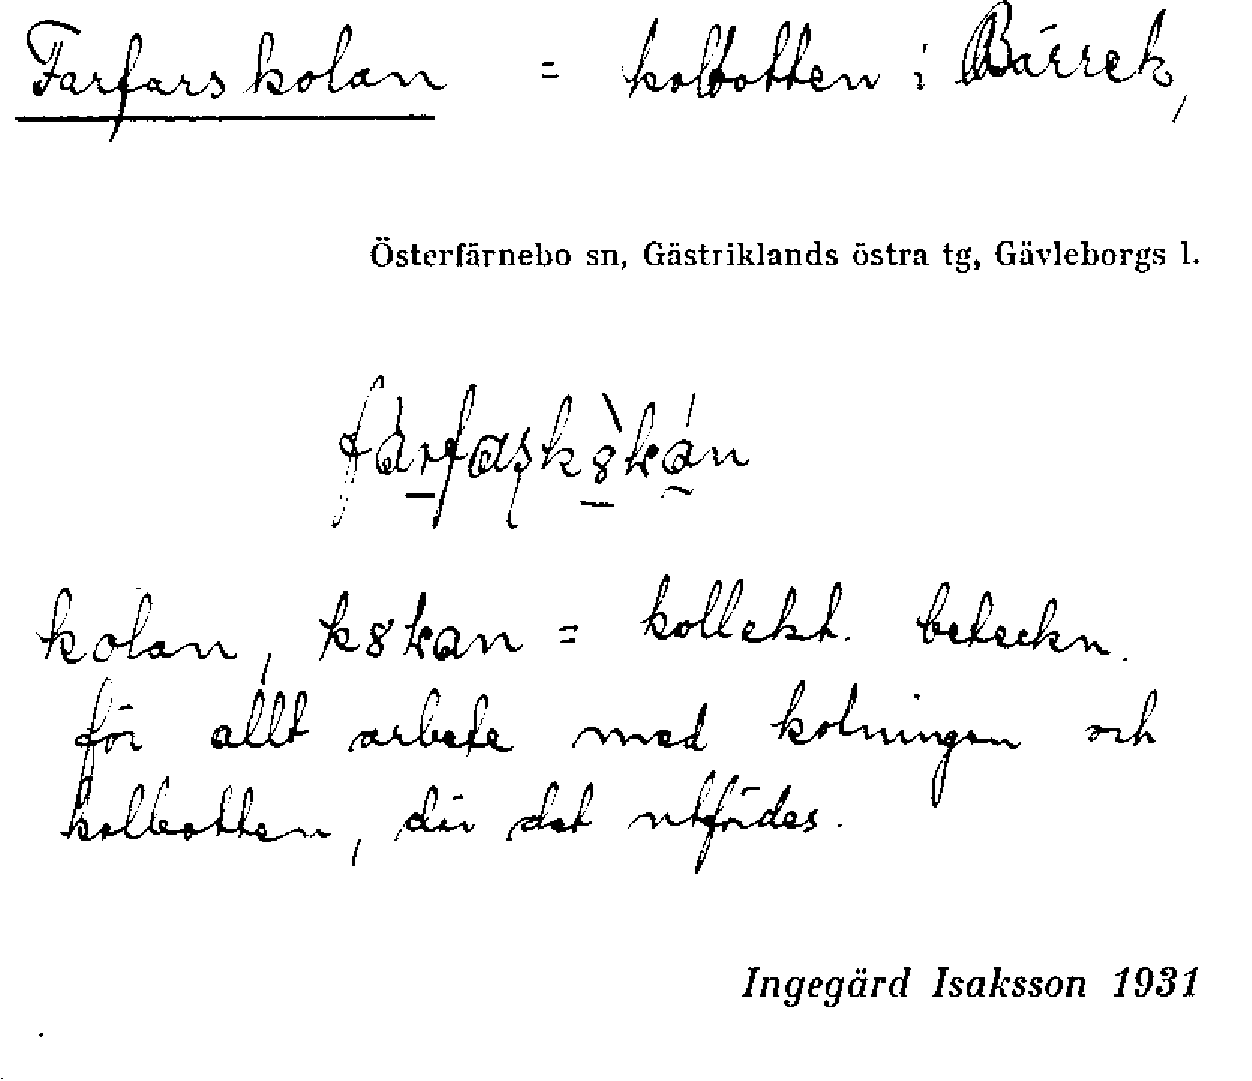 Farfarskolan = kolbotten i Bärrek,
Österfärnebo sn, Gästriklands östra tg, Gävleborgs l.
kolan, = kollekt. beteckn.
för allt arbete med kolningen och
kolbotten, där det utfördes.
Ingegärd Isaksson 1931